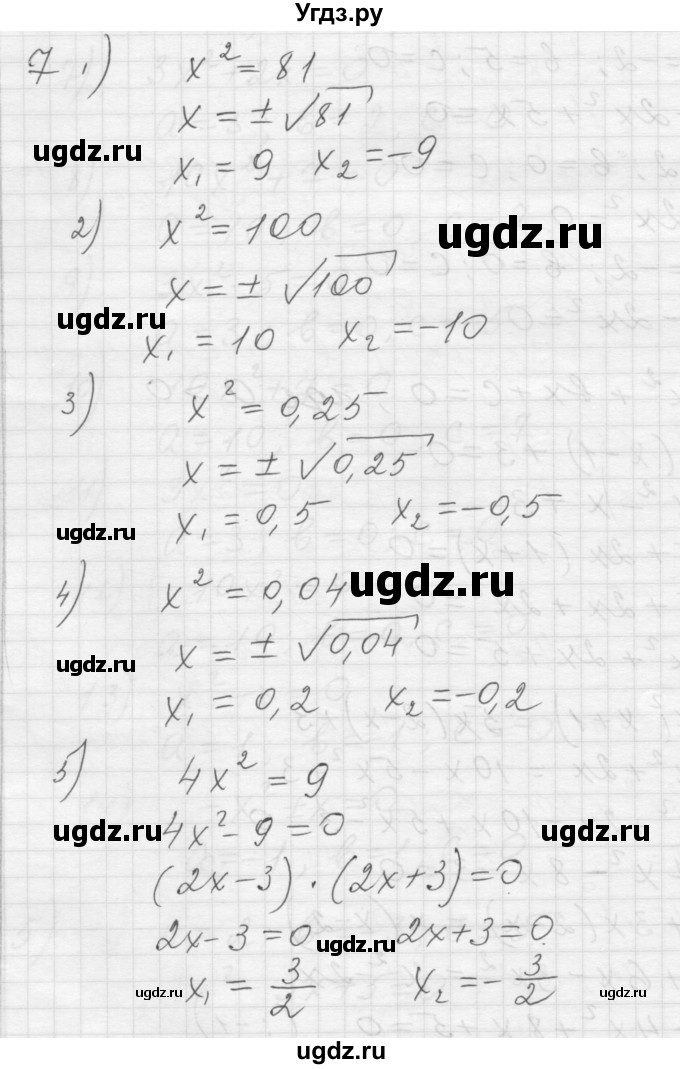 Угдз.ру
7 1) x² = 81
x = ± √81
ugdz.ru
x₁ = 9 x₂ = -9
2) x² = 100
ugdz.ru
x = ± √100
ugdz.ru
x₁ = 10 x₂ = -10
3) x² = 0,25
x = ± √0,25
x₁ = 0,5 x₂ = -0,5
ugdz.ru
4) x² = 0,04
ugdz.ru
x = ± √0,04
ugdz.ru
x₁ = 0,2 x₂ = -0,2
5) 4x² = 9
ugdz.ru
4x² - 9 = 0
ugdz.ru
(2x - 3) · (2x + 3) = 0
2x - 3 = 0 2x + 3 = 0
ugdz.ru
x₁ = 3/2 x₂ = - 3/2
ugdz.ru
ugdz.ru
ugdz.ru